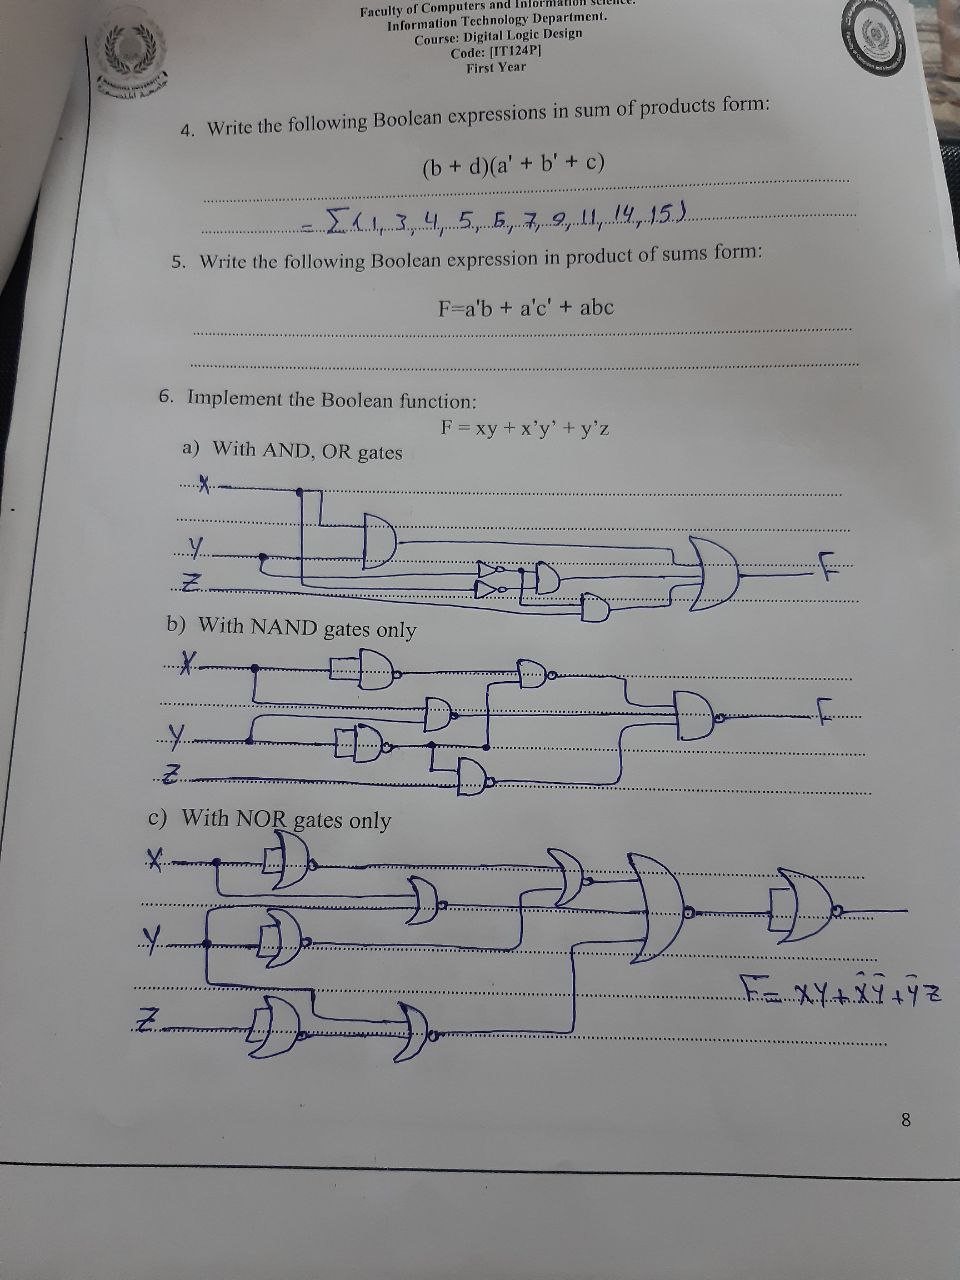 Faculty of Computers and Information science.
Information Technology Department.
Course: Digital Logic Design
Code: [IT124P]
First Year
4. Write the following Boolean expressions in sum of products form:
(b + d)(a' + b' + c)
= Σ(1, 3, 4, 5, 6, 7, 9, 11, 14, 15)
5. Write the following Boolean expression in product of sums form:
F=a'b + a'c' + abc
6. Implement the Boolean function:
F = xy + x’y’ + y’z
a) With AND, OR gates
X
Y
F
Z
b) With NAND gates only
X
F
Y
Z
c) With NOR gates only
X
Y
F = XY + X̄Ȳ + ȲZ
Z
8